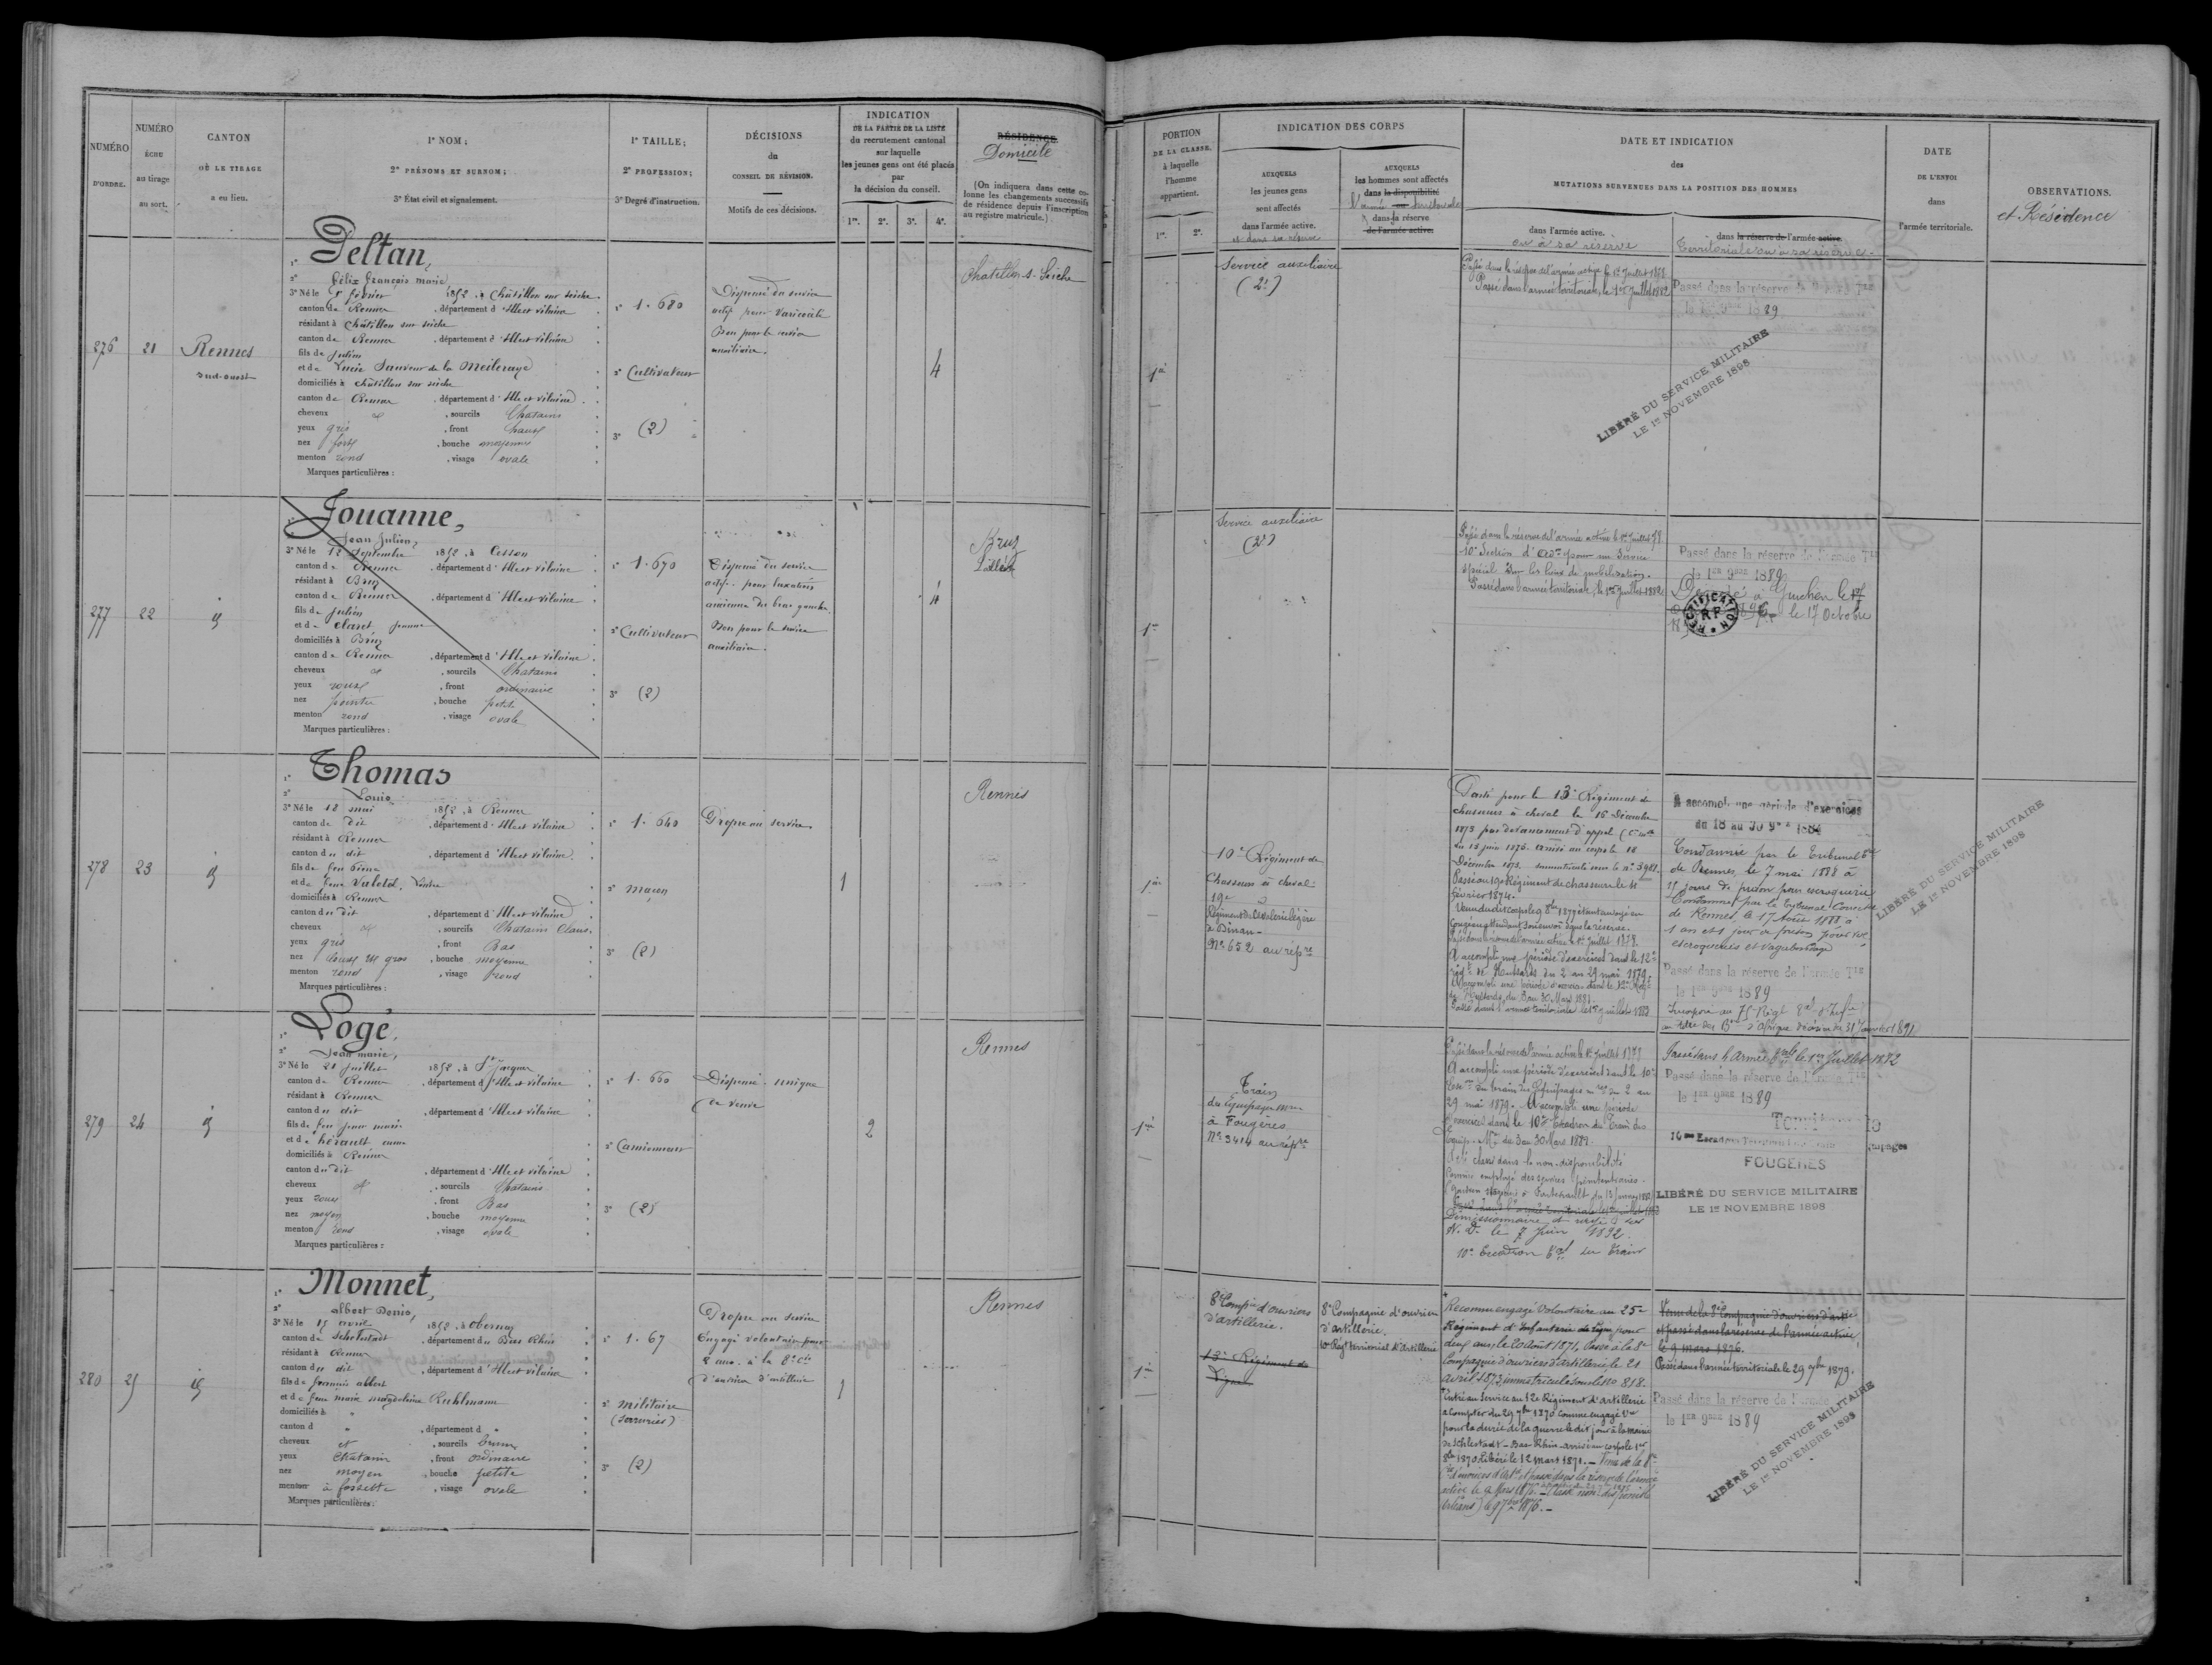 NUMÉRO
D'ORDRE.
NUMÉRO
ÉCHU
au tirage
au sort.
CANTON
OÙ LE TIRAGE
a eu lieu.
1° NOM;
2° PRÉNOMS ET SURNOM;
3° État civil et signalement.
1° TAILLE;
2° PROFESSION;
3° Degré d'instruction.
DÉCISIONS
du
CONSEIL DE RÉVISION.
Motifs de ces décisions.
INDICATION
DE LA PARTIE DE LA LISTE
du recrutement cantonal
sur laquelle
les jeunes gens ont été placés
par
la décision du conseil.
1re. 2e. 3e. 4e.
RÉSIDENCE
Domicile
(On indiquera dans cette colonne
les changements successifs
de résidence depuis l'inscription
au registre matricule.)
276
21
Rennes
sud-ouest
1° Deltan,
2° félix françois marie
3° Né le 5 février 1852, à Châtillon sur seiche
canton de Rennes, département d'Ille et vilaine
résidant à châtillon sur seiche
canton de Rennes, département d'Ille et vilaine
fils de Julien
et de Lucie Sauveur de la Meileraye
domiciliés à châtillon sur seiche
canton de Rennes, département d'Ille et vilaine
cheveux et, sourcils Chatains
yeux gris, front haut
nez fort, bouche moyenne
menton rond, visage ovale
Marques particulières :
1° 1.680
2° Cultivateur
3° (2)
Dispensé du service
actif pour varicocèle
Bon pour le service
auxiliaire.
4
Chatillon s. Seiche
277
22
id
1° Jouanne,
2° Jean Julien,
3° Né le 12 septembre 1852, à Cesson
canton de Rennes, département d'Ille et vilaine
résidant à Bruz
canton de Rennes, département d'Ille et vilaine
fils de Julien
et de Claret Jeanne
domiciliés à Bruz
canton de Rennes, département d'Ille et vilaine
cheveux et, sourcils Chatains
yeux roux, front ordinaire
nez pointu, bouche petite
menton rond, visage ovale
Marques particulières :
1° 1.670
2° Cultivateur
3° (2)
Dispensé du service
actif pour luxation
ancienne du bras gauche.
Bon pour le service
auxiliaire.
4
Bruz
278
23
id
1° Thomas
2° Louis
3° Né le 12 mai 1852, à Rennes
canton de dit, département d'Ille et vilaine
résidant à Rennes
canton du dit, département d'Ille et vilaine
fils de feu Pierre
et de feue Valotel,
domiciliés à Rennes
canton du dit, département d'Ille et vilaine
cheveux et, sourcils Chatains Clairs
yeux gris, front Bas
nez gros, bouche moyenne
menton rond, visage rond
Marques particulières :
1° 1.640
2° maçon
3° (2)
Propre au service
1
Rennes
279
24
id
1° Logé,
2° Jean marie,
3° Né le 21 Juillet 1852, à St Jacques
canton de Rennes, département d'Ille et vilaine
résidant à Rennes
canton du dit, département d'Ille et vilaine
fils de feu jean marie
et de hérault anne
domiciliés à Rennes
canton du dit, département d'Ille et vilaine
cheveux et, sourcils Chatains
yeux roux, front Bas
nez moyen, bouche moyenne
menton rond, visage ovale
Marques particulières :
1° 1.660
2° Camionneur
3° (2)
Dispensé. unique
de veuve
2
Rennes
280
25
id
1° Monnet,
2° albert Denis,
3° Né le 15 avril 1852, à Obernay
canton de Schelestadt, département du Bas Rhin
résidant à Rennes
canton du dit, département d'Ille et vilaine
fils de françois albert
et de feue marie magdeleine Ruhlmann
domiciliés à "
canton d ", département d "
cheveux et, sourcils bruns
yeux Chatains, front ordinaire
nez moyen, bouche petite
menton à fossette, visage ovale
Marques particulières :
1° 1.67
2° militaire
(serrurier)
3° (2)
Propre au service
Engagé volontaire pour
2 ans. à la 8e Cie
d'ouvriers d'artillerie
1
Rennes
PORTION
DE LA CLASSE,
à laquelle
l'homme
appartient.
1re. 2e.
INDICATION DES CORPS
AUXQUELS
les jeunes gens
sont affectés
dans l'armée active.
et dans sa réserve
AUXQUELS
les hommes sont affectés
dans la disponibilité
l'armée ou territoriale
dans la réserve
de l'armée active.
DATE ET INDICATION
des
MUTATIONS SURVENUES DANS LA POSITION DES HOMMES
dans l'armée active.
ou à sa réserve
dans la réserve de l'armée active.
Territoriale ou à sa réserve.
DATE
DE L'ENVOI
dans
l'armée territoriale.
OBSERVATIONS.
et Résidence
1re
Service auxiliaire
(2e)
Passé dans la réserve de l'armée active le 1er Juillet 1878
Passé dans l'armée territoriale, le 1er Juillet 1882
Passé dans la réserve de l'armée Tle
le 1er 9bre 1889
LIBÉRÉ DU SERVICE MILITAIRE
LE 1er NOVEMBRE 1898
1re
Service auxiliaire
(2e)
Passé dans la réserve de l'armée active le 1er Juillet 78
10e Section d'adon pour un Service
spécial sur les lieux de mobilisation.
Passé dans l'armée territoriale, le 1er Juillet 1882
Passé dans la réserve de l'armée Tle
le 1er 9bre 1889
Décédé à Guichen le 17
le 17 Octobre
RECTIFICATION
RF
1re
10e Régiment de
Chasseurs à cheval
19e d
Régiment de Cavalerie légère
à Dinan
No 652 au répre
Parti pour le 13e Régiment de
chasseurs à cheval le 16 Décembre
1873 par devancement d'appel
du 15 juin 1873. arrivé au corps le 18
Décembre 1873. immatriculé sous le no 3981.
Passé au 19e Régiment de chasseurs le 11
février 1874.
congé en attendant son renvoi dans la réserve.
Passé dans la réserve de l'armée active le 1er Juillet 1878.
A accompli une période d'exercices dans le 12e
régt de Hussards du 2 au 29 mai 1879.
A accompli une période d'exercices dans le 12e Régt
de Hussards, du 3 au 30 Mars 1881.
Passé dans l'armée territoriale le 1er juillet 1883
A accompli une période d'exercices
du 18 au 30 9bre 1884
Condamné par le Tribunal Corr
de Rennes, le 7 mai 1888 à
15 jours de prison pour escroquerie
Condamné par le Tribunal Correctel
de Rennes, le 17 Août 1888 à
1 an et 1 jour de prison pour vol
escroqueries et vagabondage
Passé dans la réserve de l'armée Tle
le 1er 9bre 1889
Incorporé au 75e Régt Tal d'Infie
au titre des Bons d'Afrique décision du 31 Janvier 1891
LIBÉRÉ DU SERVICE MILITAIRE
LE 1er NOVEMBRE 1898
1re
Train
des Equipages mres
à Fougères
No 3414 au répre
Passé dans la réserve de l'armée active le 1er Juillet 1877
A accompli une période d'exercices dans le 10e
Escon du train des Equipages mres du 2 au
29 mai 1879. A accompli une période
d'exercices dans le 10e Escadron du Train des
Equip. Mres du 3 au 30 Mars 1882.
A été classé dans la non-disponibilité
comme employé des services pénitentiaires.
(Gardien stagiaire à Fontevrault du 13 Janvier 1882)
Passé dans l'armée territoriale le 1er juillet 1883
Démissionnaire et rayé des
N. D. le 7 Juin 1892.
10e Escadron Tal du Train
Passé dans l'Armée Tale le 1er Juillet 1882
Passé dans la réserve de l'armée Tle
le 1er 9bre 1889
FOUGÈRES
LIBÉRÉ DU SERVICE MILITAIRE
LE 1er NOVEMBRE 1898
1re
8e Compie d'ouvriers
d'artillerie.
13e Régiment de
Ligne
8e Compagnie d'ouvriers
d'artillerie.
10e Regt territorial d'Artillerie
Reconnu engagé Volontaire au 25e
Régiment d'Infanterie de Ligne pour
deux ans, le 20 Août 1871, Passé à la 8e
Compagnie d'ouvriers d'artillerie le 21
avril 1873, immatriculé sous le no 818.
Entré au Service au 12e Régiment d'artillerie
à compter du 29 7bre 1870 comme engagé Vre
pour la durée de la guerre le dit jour à la mairie
de Schlestadt - Bas Rhin - arrivé au corps le 1er
8bre 1870, libéré le 12 mars 1871. - Venu de la 8e
Cie d'ouvriers d'artie et passé dans la réserve de l'armée
active le 9 Mars 1876.
Venu de la 8e Compagnie d'ouvriers d'artie
et passé dans la réserve de l'armée active,
le 9 mars 1876.
Passé dans l'armée territoriale le 29 7bre 1879.
Passé dans la réserve de l'armée Tle
le 1er 9bre 1889
LIBÉRÉ DU SERVICE MILITAIRE
LE 1er NOVEMBRE 1898